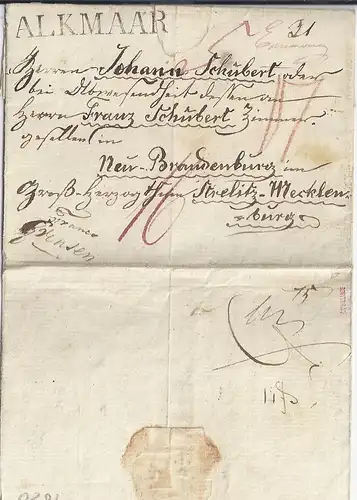 ALKMAAR
21
Herrn Johann Schubert, oder
bei Abwesenheit dessen an
Herrn Franz Schubert Zimmer-
gesellen in
Neu-Brandenburg im
Groß-Herzogthum Strelitz-Mecklen-
burg
Franco
75